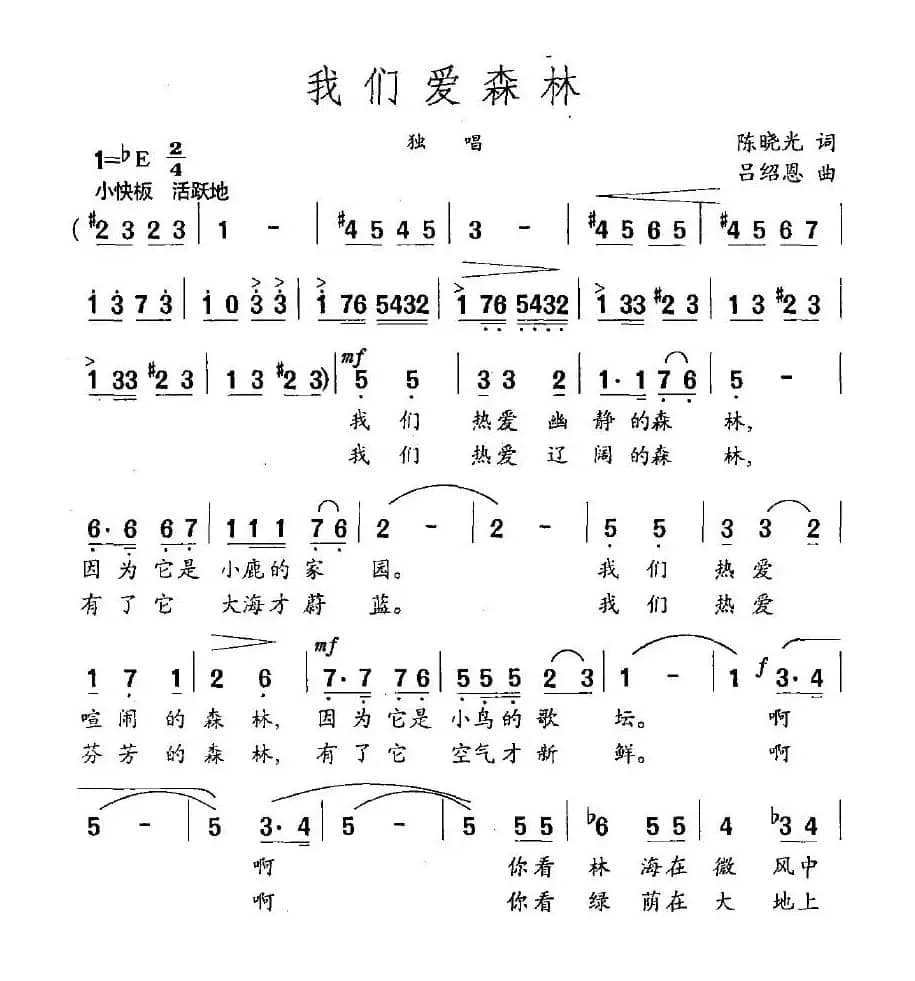 我们爱森林
独 唱
陈晓光 词
1=♭E 2/4
吕绍恩 曲
小快板 活跃地
(♯2 3 2 3 | 1 - | ♯4 5 4 5 | 3 - | ♯4 5 6 5 | ♯4 5 6 7 |
1 3 7 3 | 1 0 3 3 | 1 76 5432 | 1 76 5432 | 1 33 ♯2 3 | 1 3 ♯2 3 |
mf
1 33 ♯2 3 | 1 3 ♯2 3) | 5 5 | 3 3 2 | 1· 1 7 6 | 5 - |
我 们 热爱 幽 静 的森 林,
我 们 热爱 辽 阔 的森 林,
6· 6 6 7 | 1 1 1 7 6 | 2 - | 2 - | 5 5 | 3 3 2 |
因 为 它是 小鹿的 家 园。 我 们 热 爱
有 了 它 大海才 蔚 蓝。 我 们 热 爱
mf
f
1 7 1 | 2 6 | 7· 7 7 6 | 5 5 5 2 3 | 1 - | 1 3· 4 |
喧 闹 的 森 林, 因 为 它是 小鸟的 歌 坛。 啊
芬 芳 的 森 林, 有 了 它 空气才 新 鲜。 啊
5 - | 5 3· 4 | 5 - | 5 5 5 | ♭6 5 5 | 4 ♭3 4 |
啊 你看 林 海在 微 风中
啊 你看 绿 荫在 大 地上